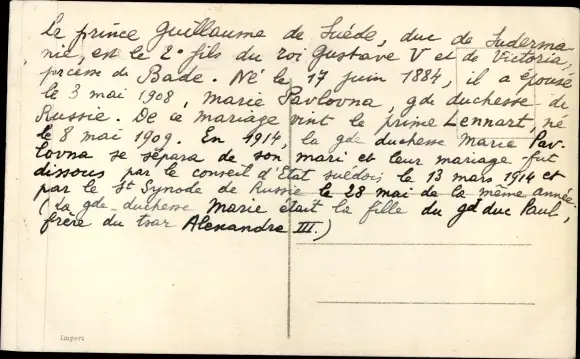 Le prince Guillaume de Suède, duc de Suderma-
nie, est le 2e fils du roi Gustave V et de Victoria,
pr.cesse de Bade. Né le 17 juin 1884, il a épousé
le 3 mai 1908, Marie Pavlovna, gde duchesse de
Russie. De ce mariage vint le prince Lennart, né
le 8 mai 1909. En 1914, la gde duchesse Marie Pav-
lovna se sépara de son mari et leur mariage fut
dissous par le conseil d'Etat suédois le 13 mars 1914 et
par le St Synode de Russie le 28 mai de la même année.
(La gde-duchesse Marie était la fille du gd duc Paul,
frère du tsar Alexandre III.)
Import